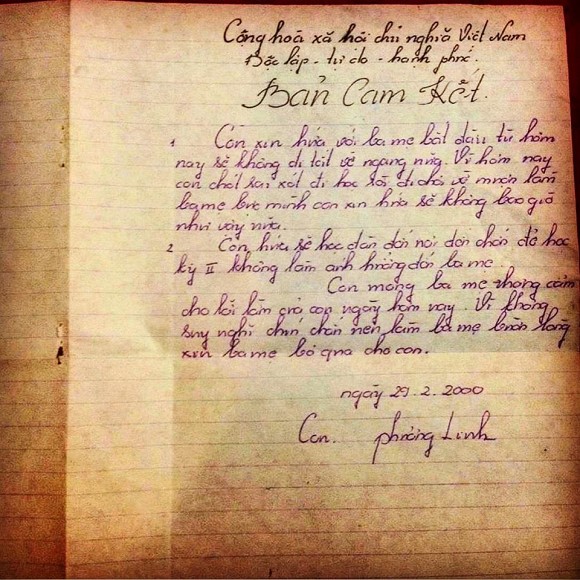 Cộng hoà xã hội chủ nghĩa Việt Nam
Độc lập - tự do - hạnh phúc.
Bản Cam Kết.
1 Con xin hứa với ba mẹ bắt đầu từ hôm
nay sẽ không đi tắt về ngang nữa. Vì hôm nay
con chót sai xót đi học rồi đi chơi về muộn làm
ba mẹ bực mình con xin hứa sẽ không bao giờ
như vậy nữa.
2 Con hứa sẽ học đến nơi đến chốn để học
kỳ II không làm ảnh hưởng đến ba mẹ.
Con mong ba mẹ thông cảm
cho lỗi lầm của con ngày hôm nay. Vì không
suy nghĩ chín chắn nên làm ba mẹ buồn lòng
xin ba mẹ bỏ qua cho con.
ngày 29.2.2000
Con. phương Linh